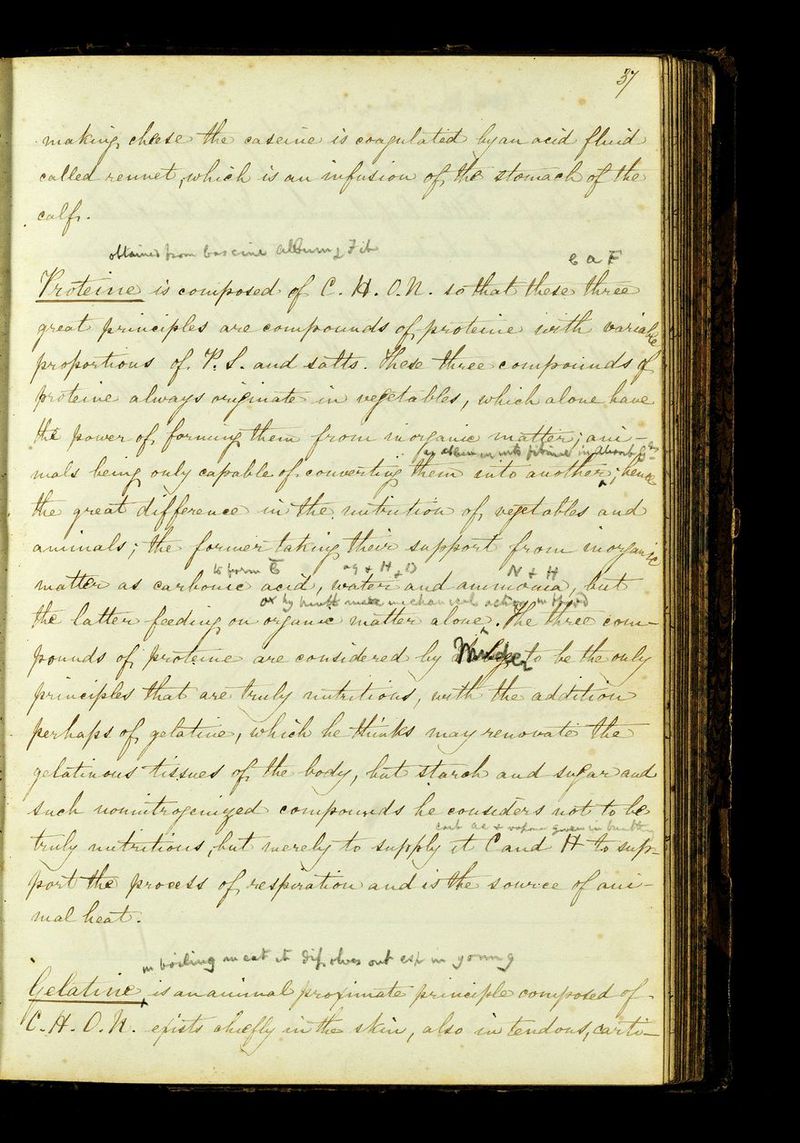 37
making cheese the caseine is coagulated by an acid fluid
called rennet, which is an infusion of the stomach of the
calf.
obtained from caseine album & Fib
C a F
Proteine is composed of C. H. O. N. so that these three
great principles are compounds of proteine with variable
proportions of P. S. and salts. These three compounds of
proteine always originate in vegetables, which alone have
the power of forming them from inorganic matter; ani-
as albumen into fibrine in
mals being only capable of converting them into another; hence
the great difference in the nutrition of vegetables and
animals; the former taking their support from inorganic
to form C aq & H + O N + H
matter as carbonic acid, water and ammonia, but
or by mechanical action
the latter feeding on organic matter alone. The three com-
pounds of proteine are considered by Mulder to be the only
principles that are truly nutritious, with the addition
perhaps of gelatine, which he thinks may renovate the
gelatinous tissues of the body, but starch and sugar and
such nonnitrogenized compounds he considers not to be
carb ac & vapour given in breath
truly nutritious, but merely to supply it C and H to sup-
port the process of respiration and is the source of ani-
mal heat.
in boiling meat it dissolves out esp in young
Gelatine is an animal proximate principle composed of
C. H. O. N. exists chiefly in the skin, also in tendons, carti-